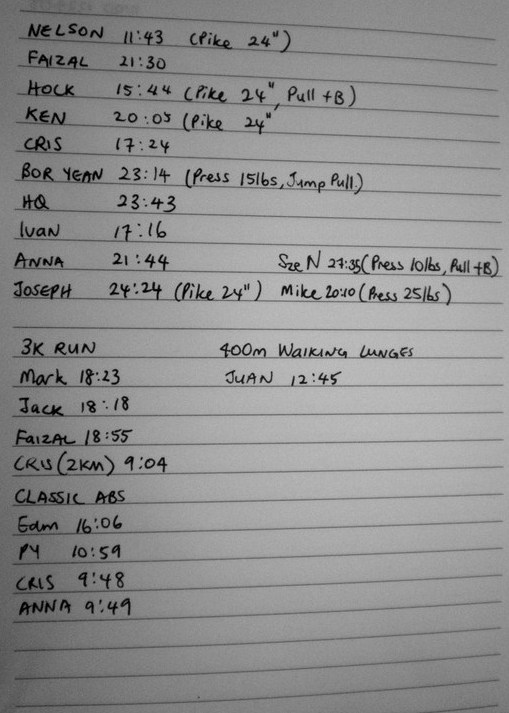 NELSON 11:43 (Pike 24")
FAIZAL 21:30
HOCK 15:44 (Pike 24", Pull +B)
KEN 20:05 (Pike 24"
CRIS 17:24
BOR YEAN 23:14 (Press 15lbs, Jump Pull)
HQ 23:43
IVAN 17:16
ANNA 21:44 Sze N 27:35 (Press 10lbs, Pull +B)
JOSEPH 24:24 (Pike 24") Mike 20:10 (Press 25lbs)
3K RUN 400m WALKING LUNGES
Mark 18:23 JUAN 12:45
Jack 18:18
FAIZAL 18:55
CRIS (2KM) 9:04
CLASSIC ABS
Edm 16:06
PY 10:59
CRIS 9:48
ANNA 9:49